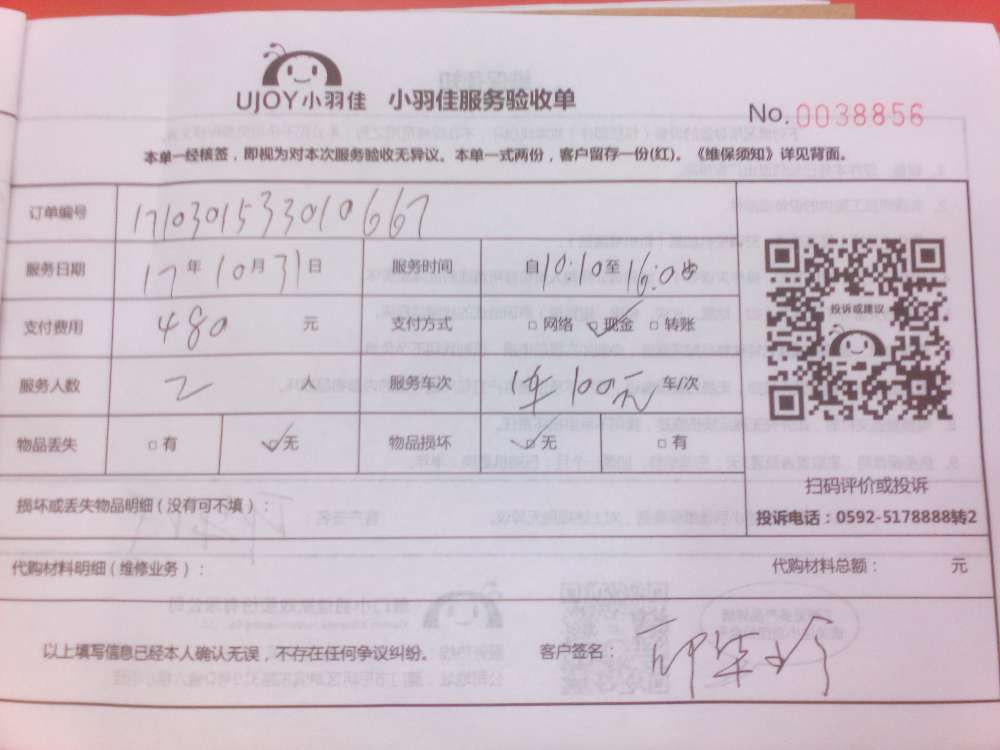 UJOY小羽佳 小羽佳服务验收单
No. 0038856
本单一经核签，即视为对本次服务验收无异议。本单一式两份，客户留存一份(红)。《维保须知》详见背面。
订单编号 1710301533010667
服务日期 17年10月31日 服务时间 自10:10至16:00
支付费用 480 元 支付方式 □网络 ☑现金 □转账
投诉或建议
服务人数 2 人 服务车次 1车100元 车/次
物品丢失 □有 ☑无 物品损坏 ☑无 □有
扫码评价或投诉
损坏或丢失物品明细（没有可不填）：
投诉电话：0592-5178888转2
代购材料明细（维修业务）： 代购材料总额： 元
以上填写信息已经本人确认无误，不存在任何争议纠纷。 客户签名：